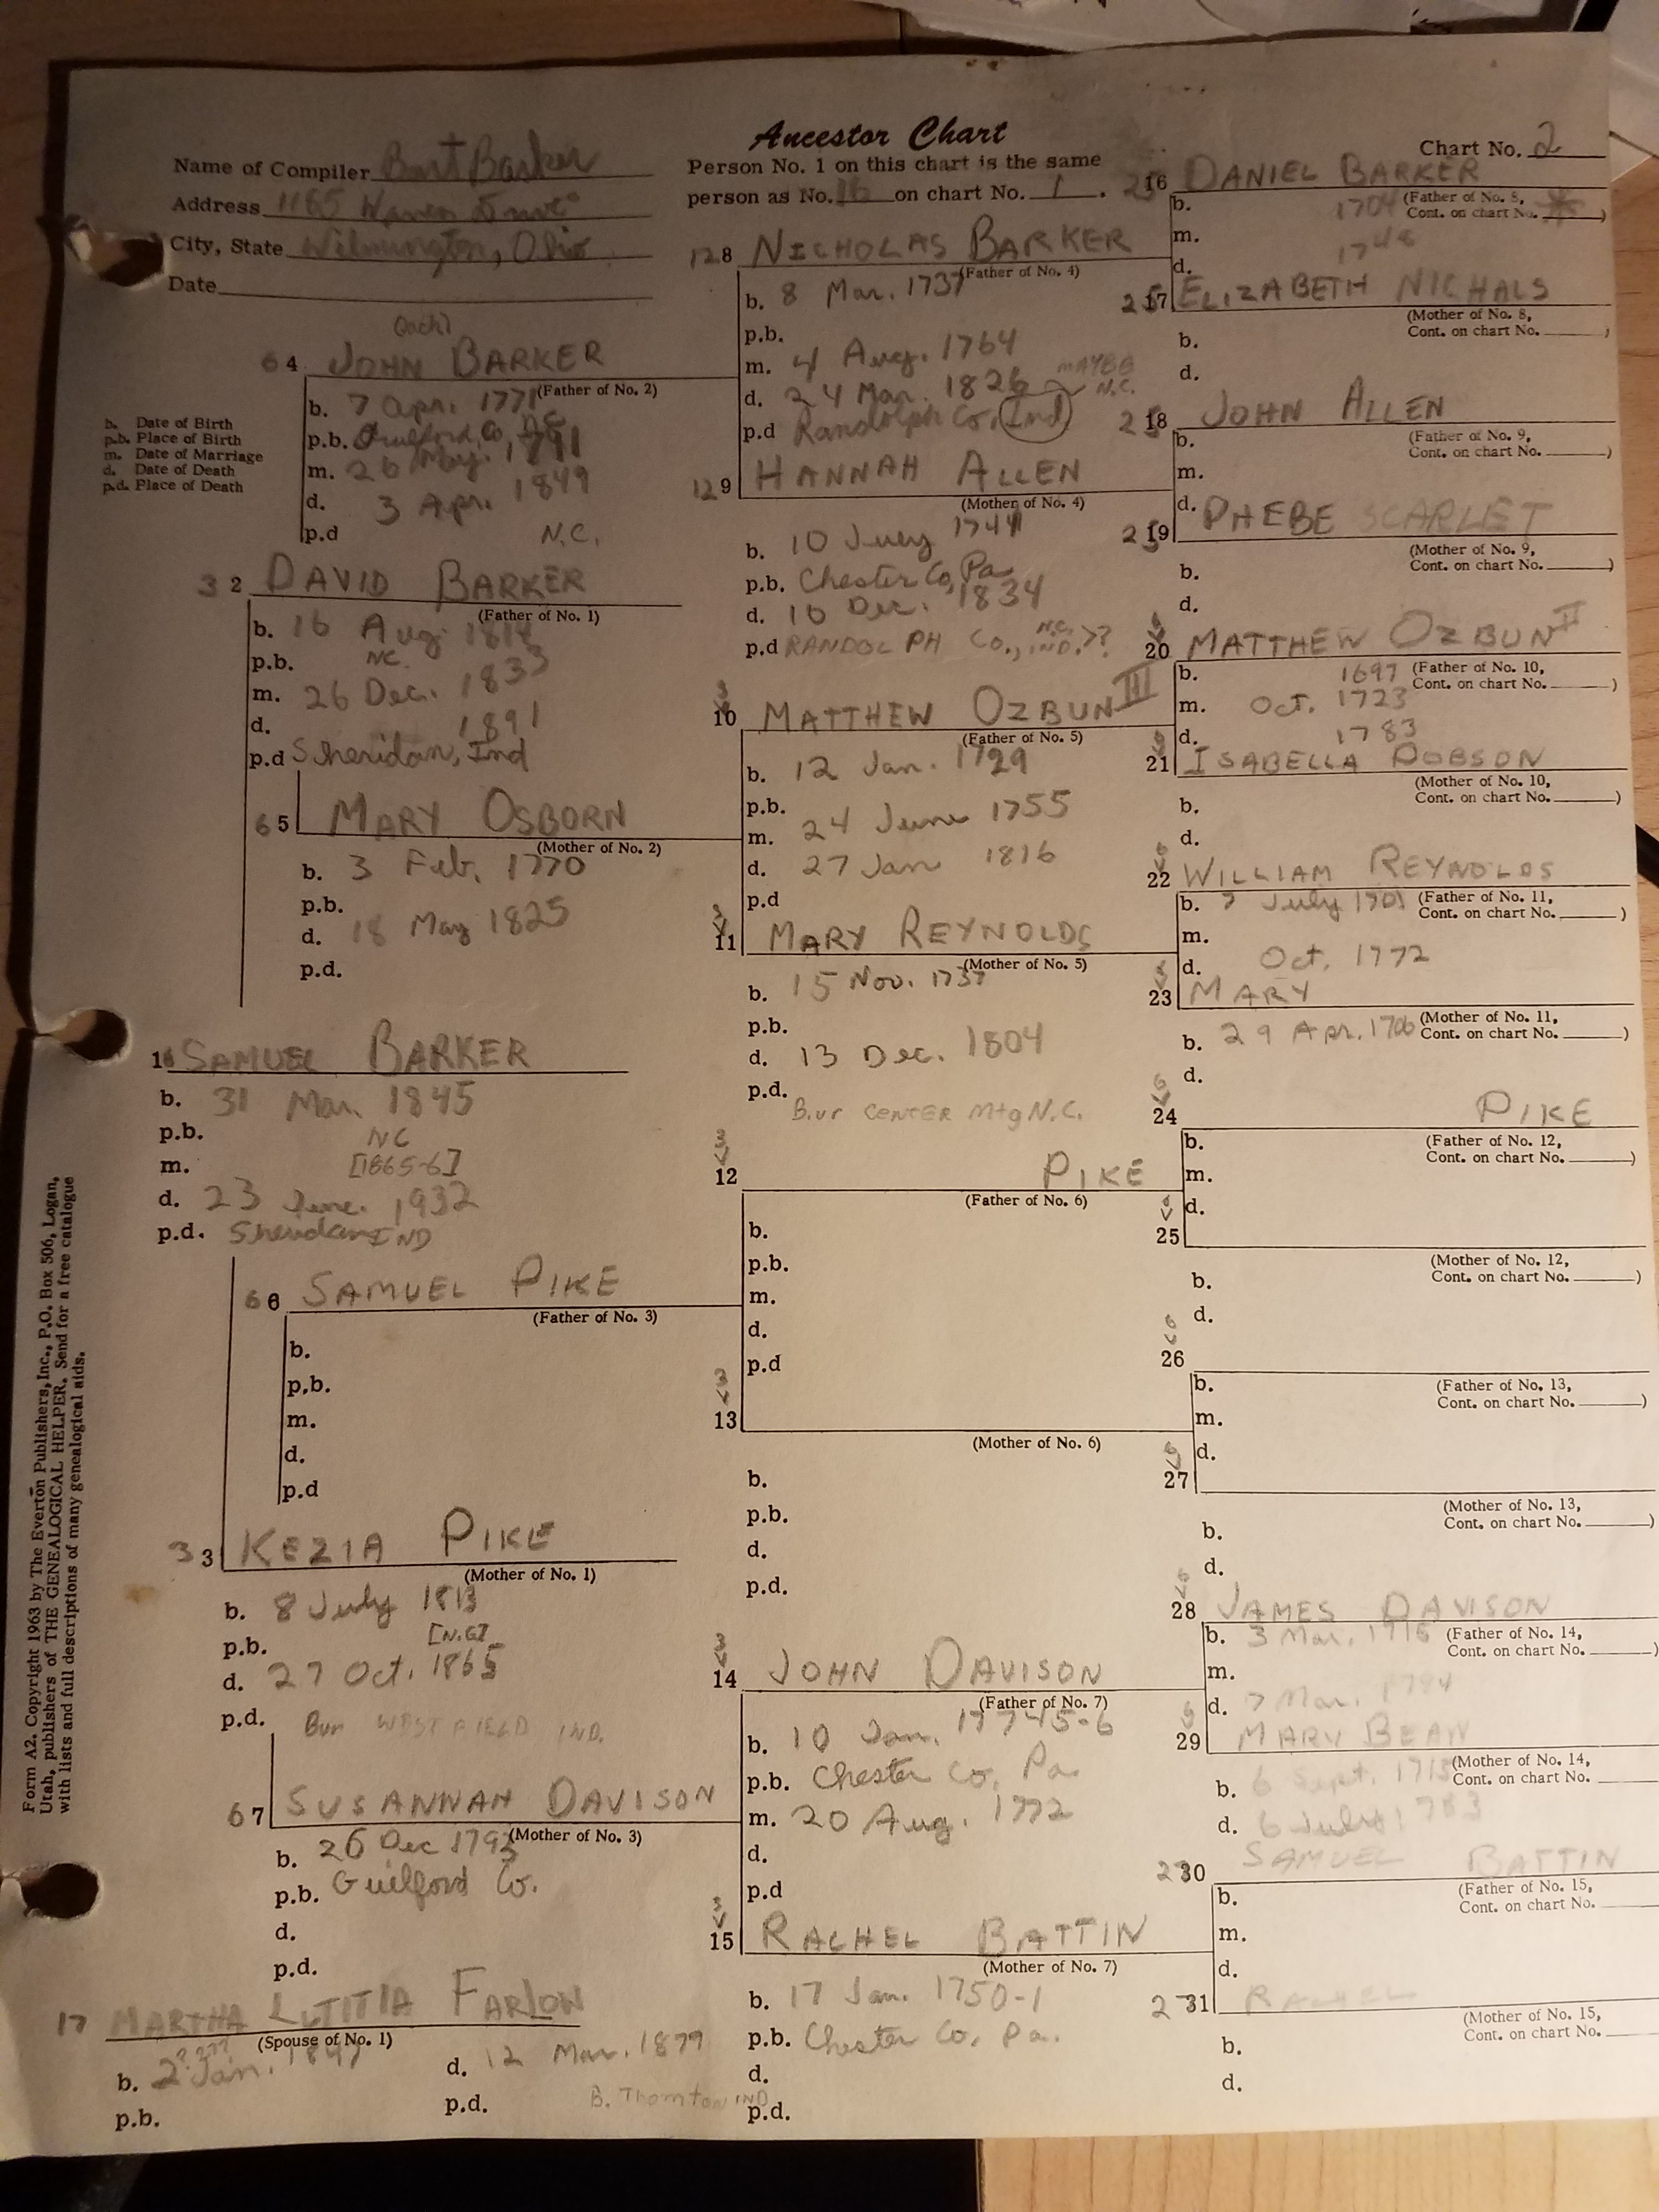 Ancestor Chart
Chart No. 2
Name of Compiler Bart Barker
Address 1165
City, State Wilmington, Ohio
Date
Person No. 1 on this chart is the same
person as No. 16 on chart No. 1.
b. Date of Birth
p.b. Place of Birth
m. Date of Marriage
d. Date of Death
p.d. Place of Death
16 SAMUEL BARKER
b. 31 Mar. 1845
p.b. NC
m. [1865-6]
d. 23 June. 1932
p.d. Sheridan IND
32 DAVID BARKER
(Father of No. 1)
b. 16 Aug
p.b. NC.
m. 26 Dec. 1833
d. 1891
p.d Sheridan, Ind
33 KEZIA PIKE
(Mother of No. 1)
b. 8 July 1813
p.b. [N.C]
d. 27 Oct. 1865
p.d. Bur WESTFIELD IND.
64 JOHN BARKER
(Father of No. 2)
b. 7 Apr. 1771
p.b. Guilford, Co
m. 26 May. 1791
d. 3 Apr. 1849
p.d N.C.
65 MARY OSBORN
(Mother of No. 2)
b. 3 Feb. 1770
p.b.
d. 18 May 1825
p.d.
66 SAMUEL PIKE
(Father of No. 3)
b.
p.b.
m.
d.
p.d
67 SUSANNAH DAVISON
(Mother of No. 3)
b. 26 Dec 1793
p.b. Guilford Co.
d.
p.d.
17 MARTHA LUTITIA FARLOW
(Spouse of No. 1)
b. 2 Jan.
d. 12 Mar. 1879
p.b.
p.d. B. Thornton IND
128 NICHOLAS BARKER
(Father of No. 4)
b. 8 Mar. 1737
p.b.
m. 4 Aug. 1764
d. 24 Mar. 1826 MAYBE N.C.
p.d Randolph Co, Ind
129 HANNAH ALLEN
(Mother of No. 4)
b. 10 July 1744
p.b. Chester Co, Pa
d. 16 Dec. 1834
p.d RANDOLPH Co., N.C. IND. >?
10 MATTHEW OZBUN III
(Father of No. 5)
b. 12 Jan. 1729
p.b.
m. 24 June 1755
d. 27 Jan 1816
p.d
11 MARY REYNOLDS
(Mother of No. 5)
b. 15 Nov. 1737
p.b.
d. 13 Dec. 1804
p.d.
Bur CENTER Mtg N.C.
12 PIKE
(Father of No. 6)
b.
p.b.
m.
d.
p.d
13
(Mother of No. 6)
b.
p.b.
d.
p.d.
14 JOHN DAVISON
(Father of No. 7)
b. 10 Jan. 1745-6
p.b. Chester Co, Pa
m. 20 Aug. 1772
d.
p.d
15 RACHEL BATTIN
(Mother of No. 7)
b. 17 Jan. 1750-1
p.b. Chester Co, Pa.
d.
p.d.
16 DANIEL BARKER
(Father of No. 8,
Cont. on chart No. )
b. 1704
m.
d. 1748
17 ELIZABETH NICHALS
(Mother of No. 8,
Cont. on chart No. )
b.
d.
18 JOHN ALLEN
(Father of No. 9,
Cont. on chart No. )
b.
m.
d.
19 PHEBE SCARLET
(Mother of No. 9,
Cont. on chart No. )
b.
d.
20 MATTHEW OZBUN II
(Father of No. 10,
Cont. on chart No. )
b. 1697
m. Oct. 1723
d. 1783
21 ISABELLA DOBSON
(Mother of No. 10,
Cont. on chart No. )
b.
d.
22 WILLIAM REYNOLDS
(Father of No. 11,
Cont. on chart No. )
b. 7 July 1701
m.
d. Oct. 1772
23 MARY
(Mother of No. 11,
Cont. on chart No. )
b. 29 Apr. 1706
d.
24 PIKE
(Father of No. 12,
Cont. on chart No. )
b.
m.
d.
25
(Mother of No. 12,
Cont. on chart No. )
b.
d.
26
(Father of No. 13,
Cont. on chart No. )
b.
m.
d.
27
(Mother of No. 13,
Cont. on chart No. )
b.
d.
28 JAMES DAVISON
(Father of No. 14,
Cont. on chart No. )
b. 3 Mar. 1716
m.
d. 7 Mar. 1794
29 MARY BEAN
(Mother of No. 14,
Cont. on chart No.
b. 6 Sept.
d. 6 July 1783
30 SAMUEL BATTIN
(Father of No. 15,
Cont. on chart No.
b.
m.
d.
31 RACHEL
(Mother of No. 15,
Cont. on chart No.
b.
d.
Form A2. Copyright 1963 by The Everton Publishers, Inc., P.O. Box 506, Logan,
Utah, publishers of THE GENEALOGICAL HELPER. Send for a free catalogue
with lists and full descriptions of many genealogical aids.